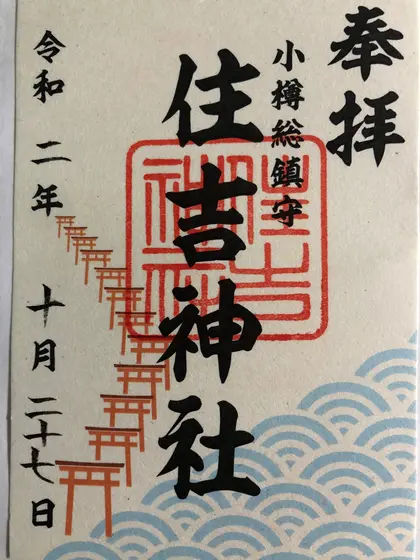 奉拝
小樽総鎮守
住吉神社
住吉神社
令和二年十月二十七日